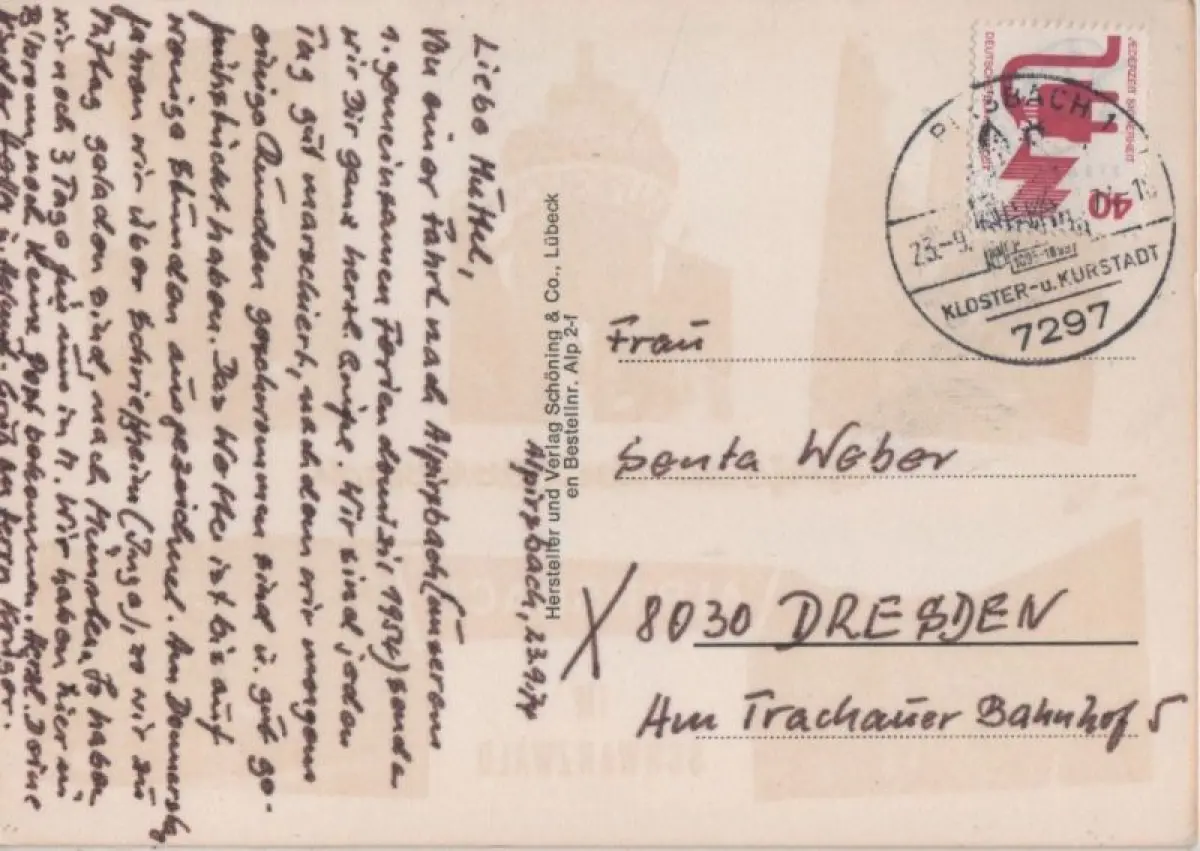 Alpirsbach, 23.9.74
Liebe Muttel,
Von einer Fahrt nach Alpirsbach (unserem
1. gemeinsamen Feriendomizil 1954) senden
wir Dir ganz herzl. Grüße. Wir sind jeden
Tag gut marschiert, nachdem wir morgens
einige Runden geschwommen sind u. gut ge-
frühstückt haben. Das Wetter ist bis auf
wenige Stunden ausgezeichnet. Am Donnerstg.
fahren wir über Schriesheim (Inge), wo wir zu
Mittag geladen sind, nach Münster. So haben
wir noch 3 Tage für uns in M. Wir haben hier in
B'bronn noch keine Post bekommen. Herzl. Deine
Kinder
Hersteller und Verlag Schöning & Co., Lübeck
en Bestellnr. Alp 2-f
JEDERZEIT SICHERHEIT
DEUTSCHE BUNDESPOST
40
ALPIRSBACH 1
23.-9.
KLOSTER-u.KURSTADT
7297
Frau
Senta Weber
X 8030 DRESDEN
Am Trachauer Bahnhof 5
IM
SCHWARZWALD